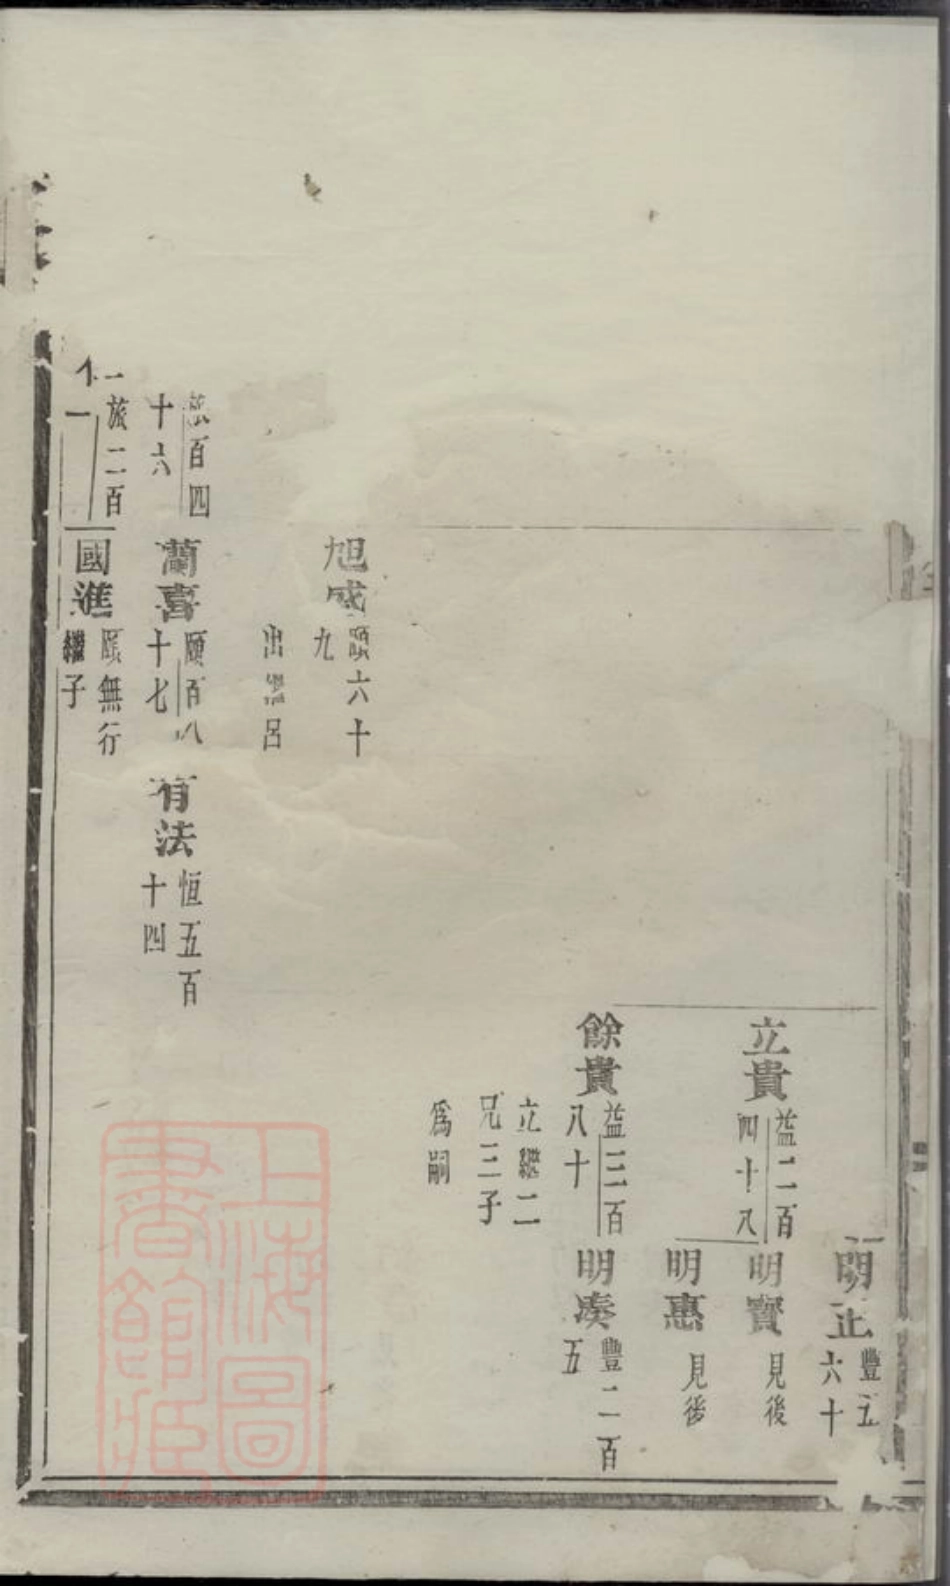 明正
豐五
六十
立貴
益二百
四十八
明寳
見後
明惠
見後
餘貴
益三百
八十
立繼二
兄三子
爲嗣
明湊
豐二百
五
旭成
頤六十
九
出
呂
百四
十六
蘭喜
頤百八
十七
有法
恒五百
十四
旅二百
一
國進
頤無行
繼子
上海圖
書館藏